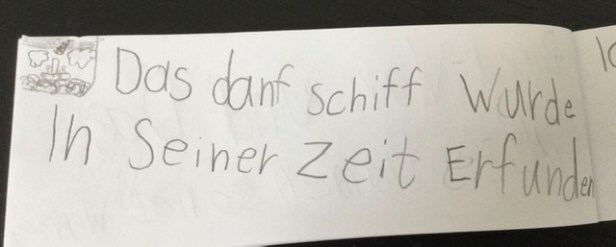 Das danf schiff Wurde
In Seiner Zeit Erfunden